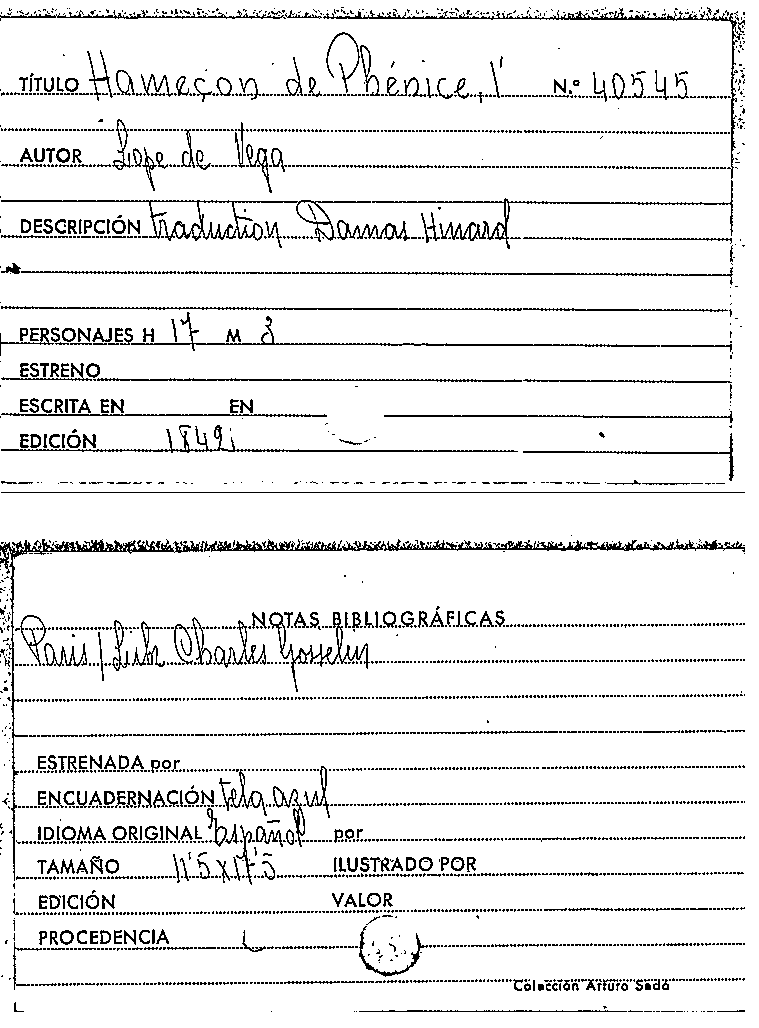 TÍTULO Hameçon de Phénice, l' N.º 40545
AUTOR Lope de Vega
DESCRIPCIÓN traduction Damas Hinard
PERSONAJES H 17 M 3
ESTRENO
ESCRITA EN EN
EDICIÓN 1842
NOTAS BIBLIOGRÁFICAS
Paris / Libr Charles Gosselin
ESTRENADA por
ENCUADERNACIÓN tela azul
IDIOMA ORIGINAL Español por
TAMAÑO 11'5 x 17'5 ILUSTRADO POR
EDICIÓN VALOR
PROCEDENCIA
Colección Arturo Sedó